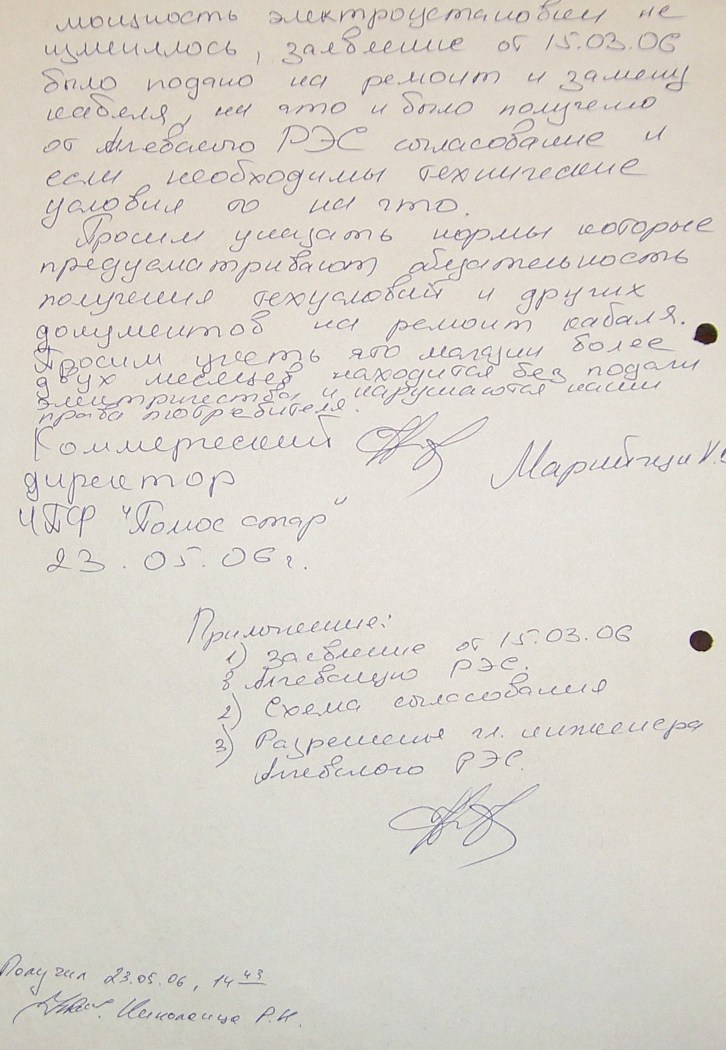 мощность электроустановки не
изменилось, заявление от 15.03.06
было подано на ремонт и замену
кабеля, на что и было получено
от Ачевского РЭС согласование и
если необходимы технические
условия то на что.
Просим указать нормы которые
предусматривают обязательность
получения техусловий и других
документов на ремонт кабаля.
Просим учесть что магазин более
двух месяцев находится без подачи
электричества и нарушаются наши
права потребителя.
Коммерческий
директор
ЧПФ "Полюс стар"
23.05.06г.
Приложение:
1) Заявление от 15.03.06
в РЭС.
2) Схема согласования
3) Разрешенье гл. инженера
РЭС.
Получил 23.05.06, 14 43
Николаица Р.Н.